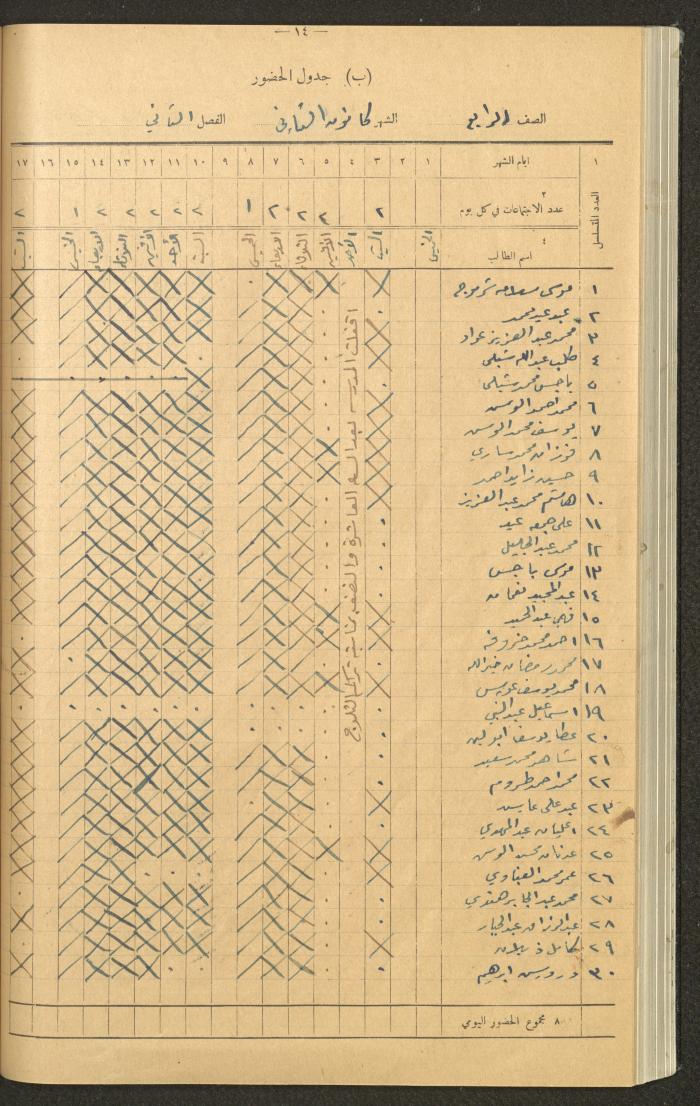 — ١٤ —
(ب) جدول الحضور
الصف الرابع الشهر كانون الثاني الفصل الثاني
١ ايام الشهر ١ ٢ ٣ ٤ ٥ ٦ ٧ ٨ ٩ ١٠ ١١ ١٢ ١٣ ١٤ ١٥ ١٦ ١٧
العدد المتسلسل
٢
عدد الاجتماعات في كل يوم ٢ ٢ ٢ ٢ ١ ٢ ٢ ٢ ٢ ٢ ١ ٢
٤
اسم الطالب الخميس السبت الأحد الاثنين الثلاثاء الاربعاء الخميس السبت الأحد الاثنين الثلاثاء الاربعاء الخميس السبت
١ موسى سلامه
٢ عبد عيد محمد
٣ محمد عبد العزيز عواد
٤ طلب عبد الله شبلي
٥ ياجس محمد شبلي
٦ محمد احمد
٧ يوسف محمد
٨ فوزان محمد ساري
٩ حسين زايد احمد
١٠ هاشم محمد عبد العزيز
١١ علي جمعه عيد
١٢ محمد عبد الجليل
١٣ موسى ياجس
١٤ عبد المجيد نعمان
١٥ فهمي عبد الحميد
١٦ احمد محمد خروفه
١٧ محمود رمضان خير الله
١٨ محمد يوسف عويس
١٩ اسماعيل عبد النبي
٢٠ عطا يوسف ابو لبن
٢١ شاهر محمد سعيد
٢٢ محمد احمد
٢٣ عبد علي عايش
٢٤ عليان عبد المهدي
٢٥ عدنان محمد
٢٦ عمر محمد العناوي
٢٧ محمد عبد الجابر هنوي
٢٨ عبد الرزاق عبد الجبار
٢٩ كامل ذيبان
٣٠ درويش ابرهيم
اقفلت المدرسه بعد الساعة العاشرة والنصف بمناسبة تراكم الثلوج
٨ مجموع الحضور اليومي